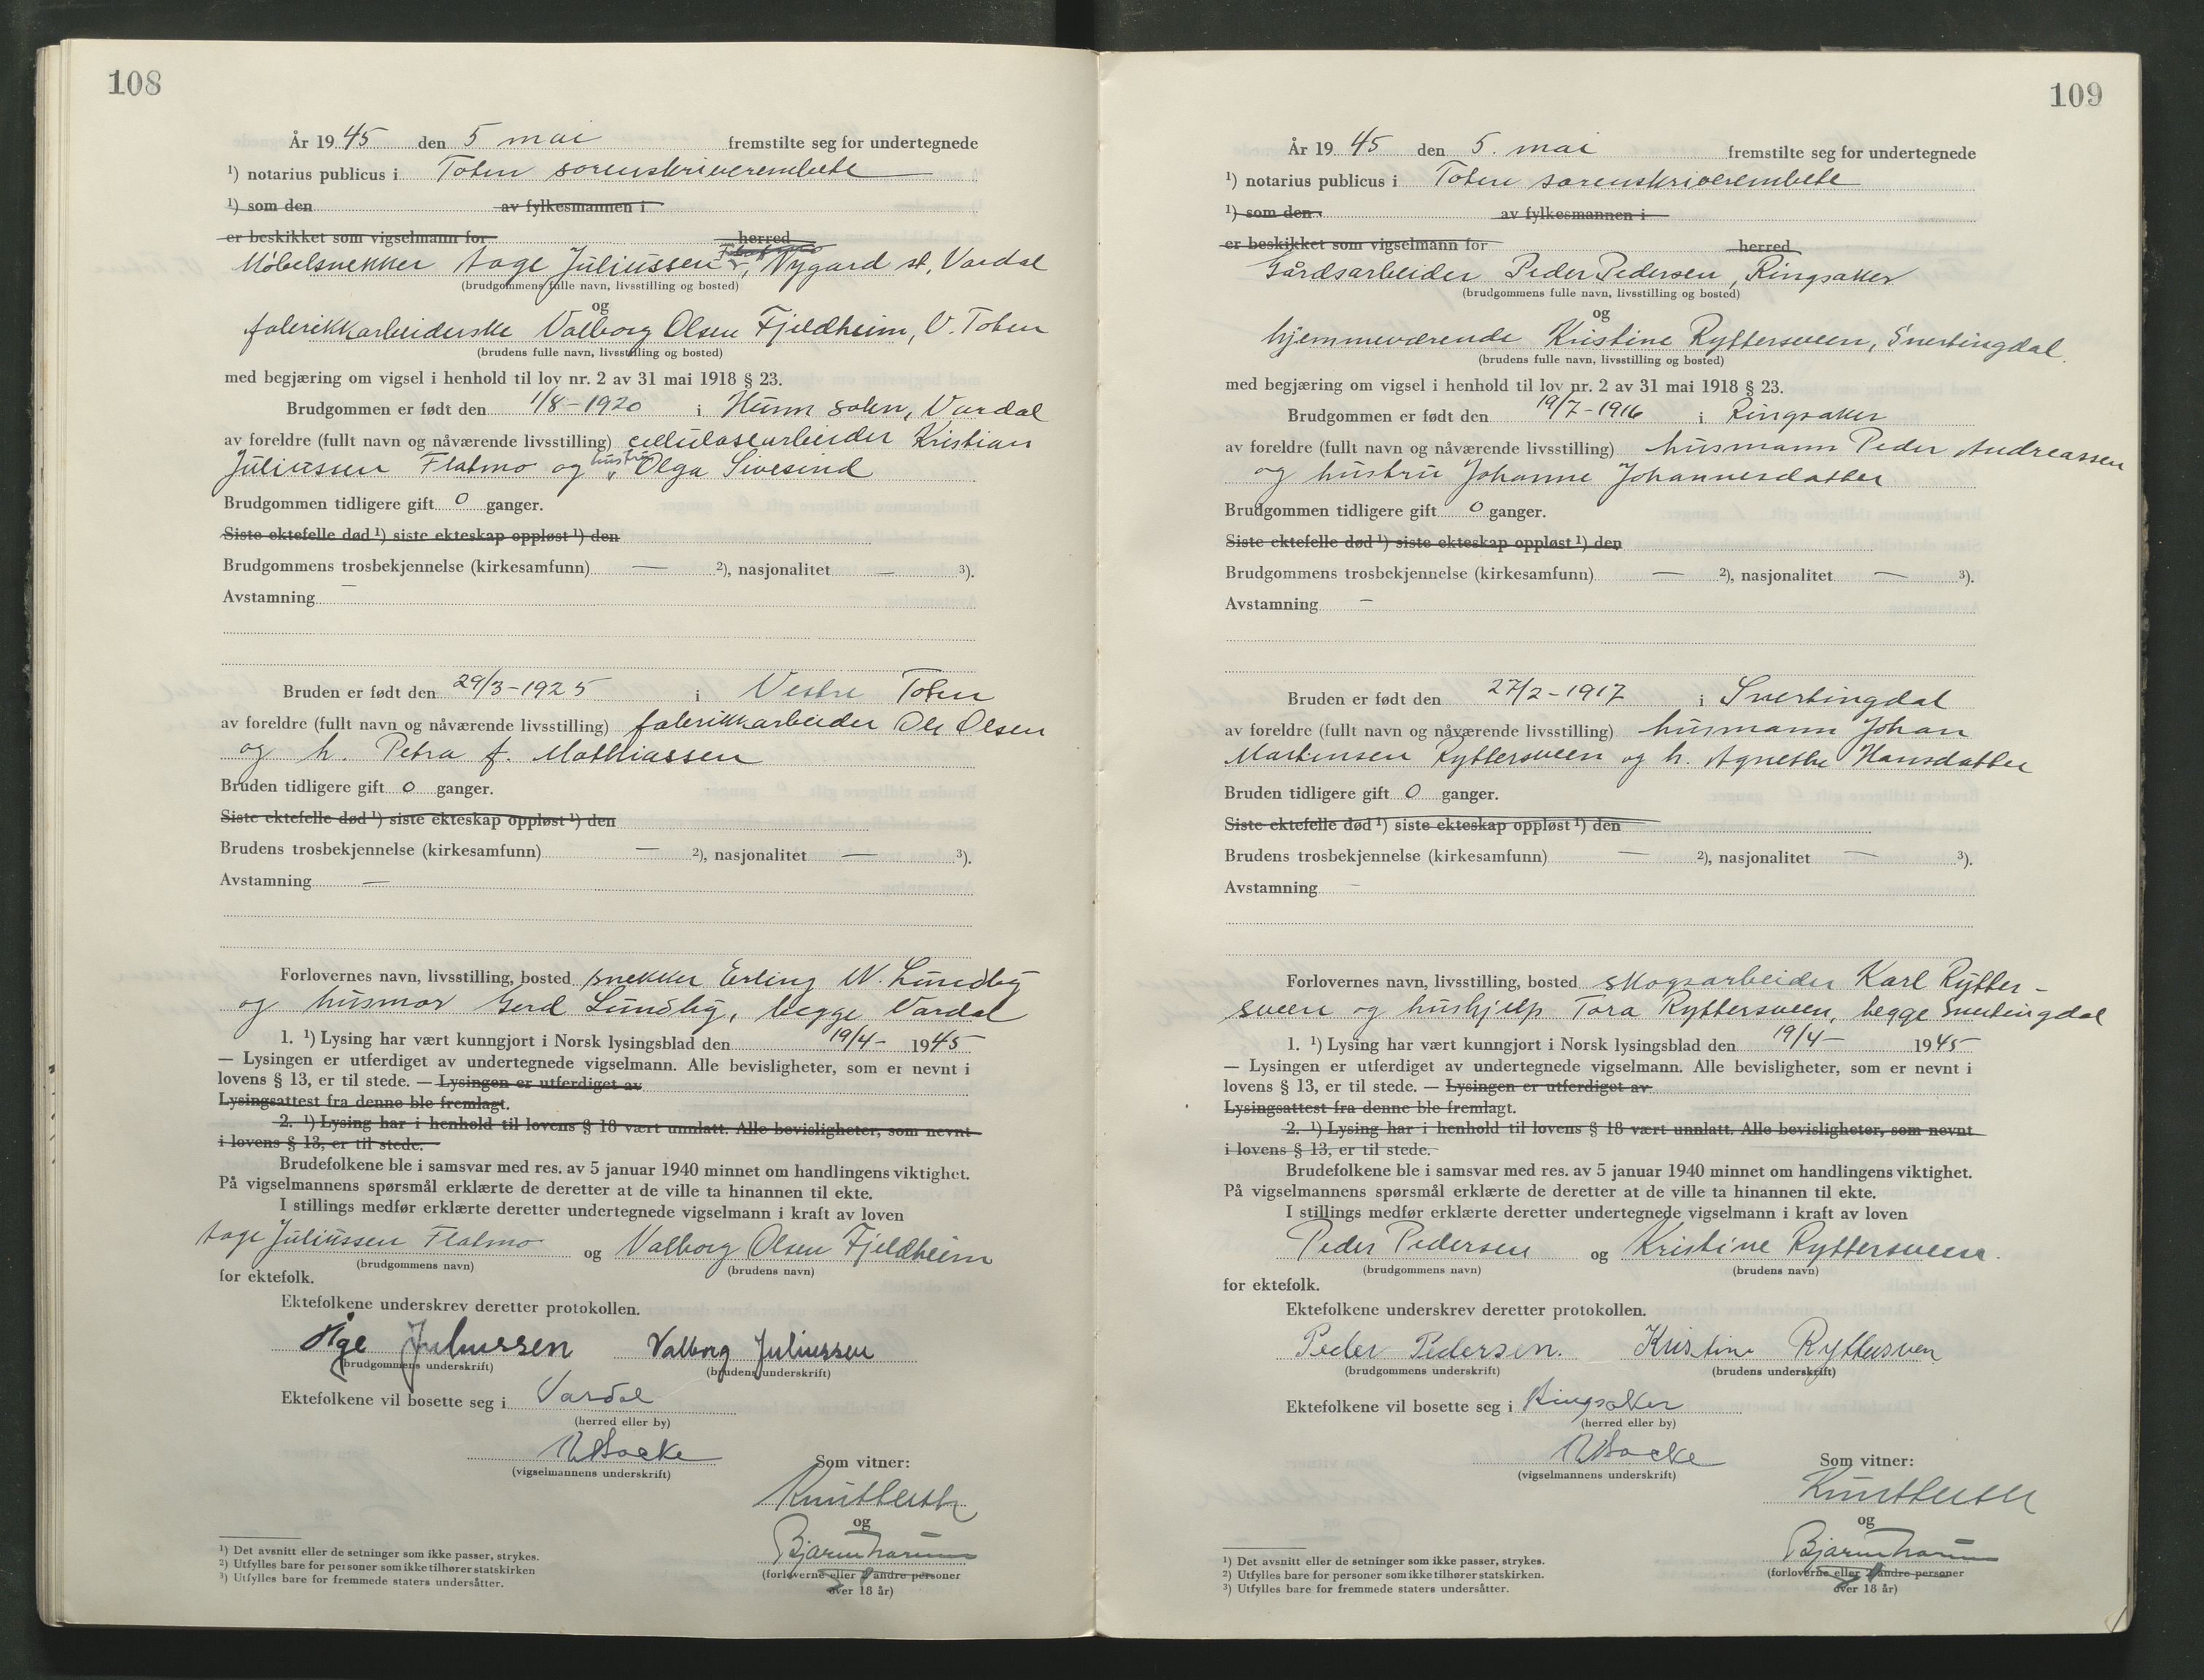 108
År 19 45 den 5 mai fremstilte seg for undertegnede
¹) notarius publicus i Toten sorenskriverembete
¹) som den av fylkesmannen i
er beskikket som vigselmann for herred
Møbelsnekker Aage Juliussen, Nygard st, Vardal
(brudgommens fulle navn, livsstilling og bosted)
og
fabrikkarbeiderske Valborg Olsen Fjeldheim, V. Toten
(brudens fulle navn, livsstilling og bosted)
med begjæring om vigsel i henhold til lov nr. 2 av 31 mai 1918 § 23.
Brudgommen er født den 1/8-1920 i Hunn sokn, Vardal
av foreldre (fullt navn og nåværende livsstilling) cellulosearbeider Kristian
Juliussen Flatmo og hustru Olga Sivesind
Brudgommen tidligere gift 0 ganger.
Siste ektefelle død ¹) siste ekteskap oppløst ¹) den
Brudgommens trosbekjennelse (kirkesamfunn) — ²), nasjonalitet — ³).
Avstamning —
Bruden er født den 29/3-1925 i Vestre Toten
av foreldre (fullt navn og nåværende livsstilling) fabrikkarbeider Ole Olsen
og h. Petra f. Mathiassen
Bruden tidligere gift 0 ganger.
Siste ektefelle død ¹) siste ekteskap oppløst ¹) den
Brudens trosbekjennelse (kirkesamfunn) — ²), nasjonalitet — ³).
Avstamning —
Forlovernes navn, livsstilling, bosted snekker Erling N. Lundby
og husmor Gerd Lundby, begge Vardal
1. ¹) Lysing har vært kunngjort i Norsk lysingsblad den 19/4- 1945
— Lysingen er utferdiget av undertegnede vigselmann. Alle bevisligheter, som er nevnt i
lovens § 13, er til stede. — Lysingen er utferdiget av
Lysingsattest fra denne ble fremlagt.
2. ¹) Lysing har i henhold til lovens § 18 vært unnlatt. Alle bevisligheter, som nevnt
i lovens § 13, er til stede.
Brudefolkene ble i samsvar med res. av 5 januar 1940 minnet om handlingens viktighet.
På vigselmannens spørsmål erklærte de deretter at de ville ta hinannen til ekte.
I stillings medfør erklærte deretter undertegnede vigselmann i kraft av loven
Aage Juliussen Flatmo og Valborg Olsen Fjeldheim
(brudgommens navn) (brudens navn)
for ektefolk.
Ektefolkene underskrev deretter protokollen.
Åge Juliussen Valborg Juliussen
(brudgommens underskrift) (brudens underskrift)
Ektefolkene vil bosette seg i Vardal
(herred eller by)
(vigselmannens underskrift)
Som vitner:
og
(forloverne eller 2 andre personer
over 18 år)
¹) Det avsnitt eller de setninger som ikke passer, strykes.
²) Utfylles bare for personer som ikke tilhører statskirken
³) Utfylles bare for fremmede staters undersåtter.
109
År 19 45 den 5. mai fremstilte seg for undertegnede
¹) notarius publicus i Toten sorenskriverembete
¹) som den av fylkesmannen i
er beskikket som vigselmann for herred
Gårdsarbeider Peder Pedersen, Ringsaker
(brudgommens fulle navn, livsstilling og bosted)
og
hjemmeværende Kristine Ryttersveen, Snertingdal.
(brudens fulle navn, livsstilling og bosted)
med begjæring om vigsel i henhold til lov nr. 2 av 31 mai 1918 § 23.
Brudgommen er født den 19/7-1916 i Ringsaker
av foreldre (fullt navn og nåværende livsstilling) husmann Peder Andreassen
og hustru Johanne Johannesdatter
Brudgommen tidligere gift 0 ganger.
Siste ektefelle død ¹) siste ekteskap oppløst ¹) den
Brudgommens trosbekjennelse (kirkesamfunn) — ²), nasjonalitet — ³).
Avstamning —
Bruden er født den 27/2-1917 i Snertingdal
av foreldre (fullt navn og nåværende livsstilling) husmann Johan
Martinsen Ryttersveen og h. Agnethe Hansdatter
Bruden tidligere gift 0 ganger.
Siste ektefelle død ¹) siste ekteskap oppløst ¹) den
Brudens trosbekjennelse (kirkesamfunn) — ²), nasjonalitet — ³).
Avstamning —
Forlovernes navn, livsstilling, bosted skogsarbeider Karl Rytter-
sveen og hushjelp Tora Ryttersveen, begge Snertingdal
1. ¹) Lysing har vært kunngjort i Norsk lysingsblad den 19/4- 1945
— Lysingen er utferdiget av undertegnede vigselmann. Alle bevisligheter, som er nevnt i
lovens § 13, er til stede. — Lysingen er utferdiget av
Lysingsattest fra denne ble fremlagt.
2. ¹) Lysing har i henhold til lovens § 18 vært unnlatt. Alle bevisligheter, som nevnt
i lovens § 13, er til stede.
Brudefolkene ble i samsvar med res. av 5 januar 1940 minnet om handlingens viktighet.
På vigselmannens spørsmål erklærte de deretter at de ville ta hinannen til ekte.
I stillings medfør erklærte deretter undertegnede vigselmann i kraft av loven
Peder Pedersen og Kristine Ryttersveen.
(brudgommens navn) (brudens navn)
for ektefolk.
Ektefolkene underskrev deretter protokollen.
Peder Pedersen. Kristine Ryttersven
(brudgommens underskrift) (brudens underskrift)
Ektefolkene vil bosette seg i Ringsaker
(herred eller by)
(vigselmannens underskrift)
Som vitner:
og
(forloverne eller 2 andre personer
over 18 år)
¹) Det avsnitt eller de setninger som ikke passer, strykes.
²) Utfylles bare for personer som ikke tilhører statskirken.
³) Utfylles bare for fremmede staters undersåtter.